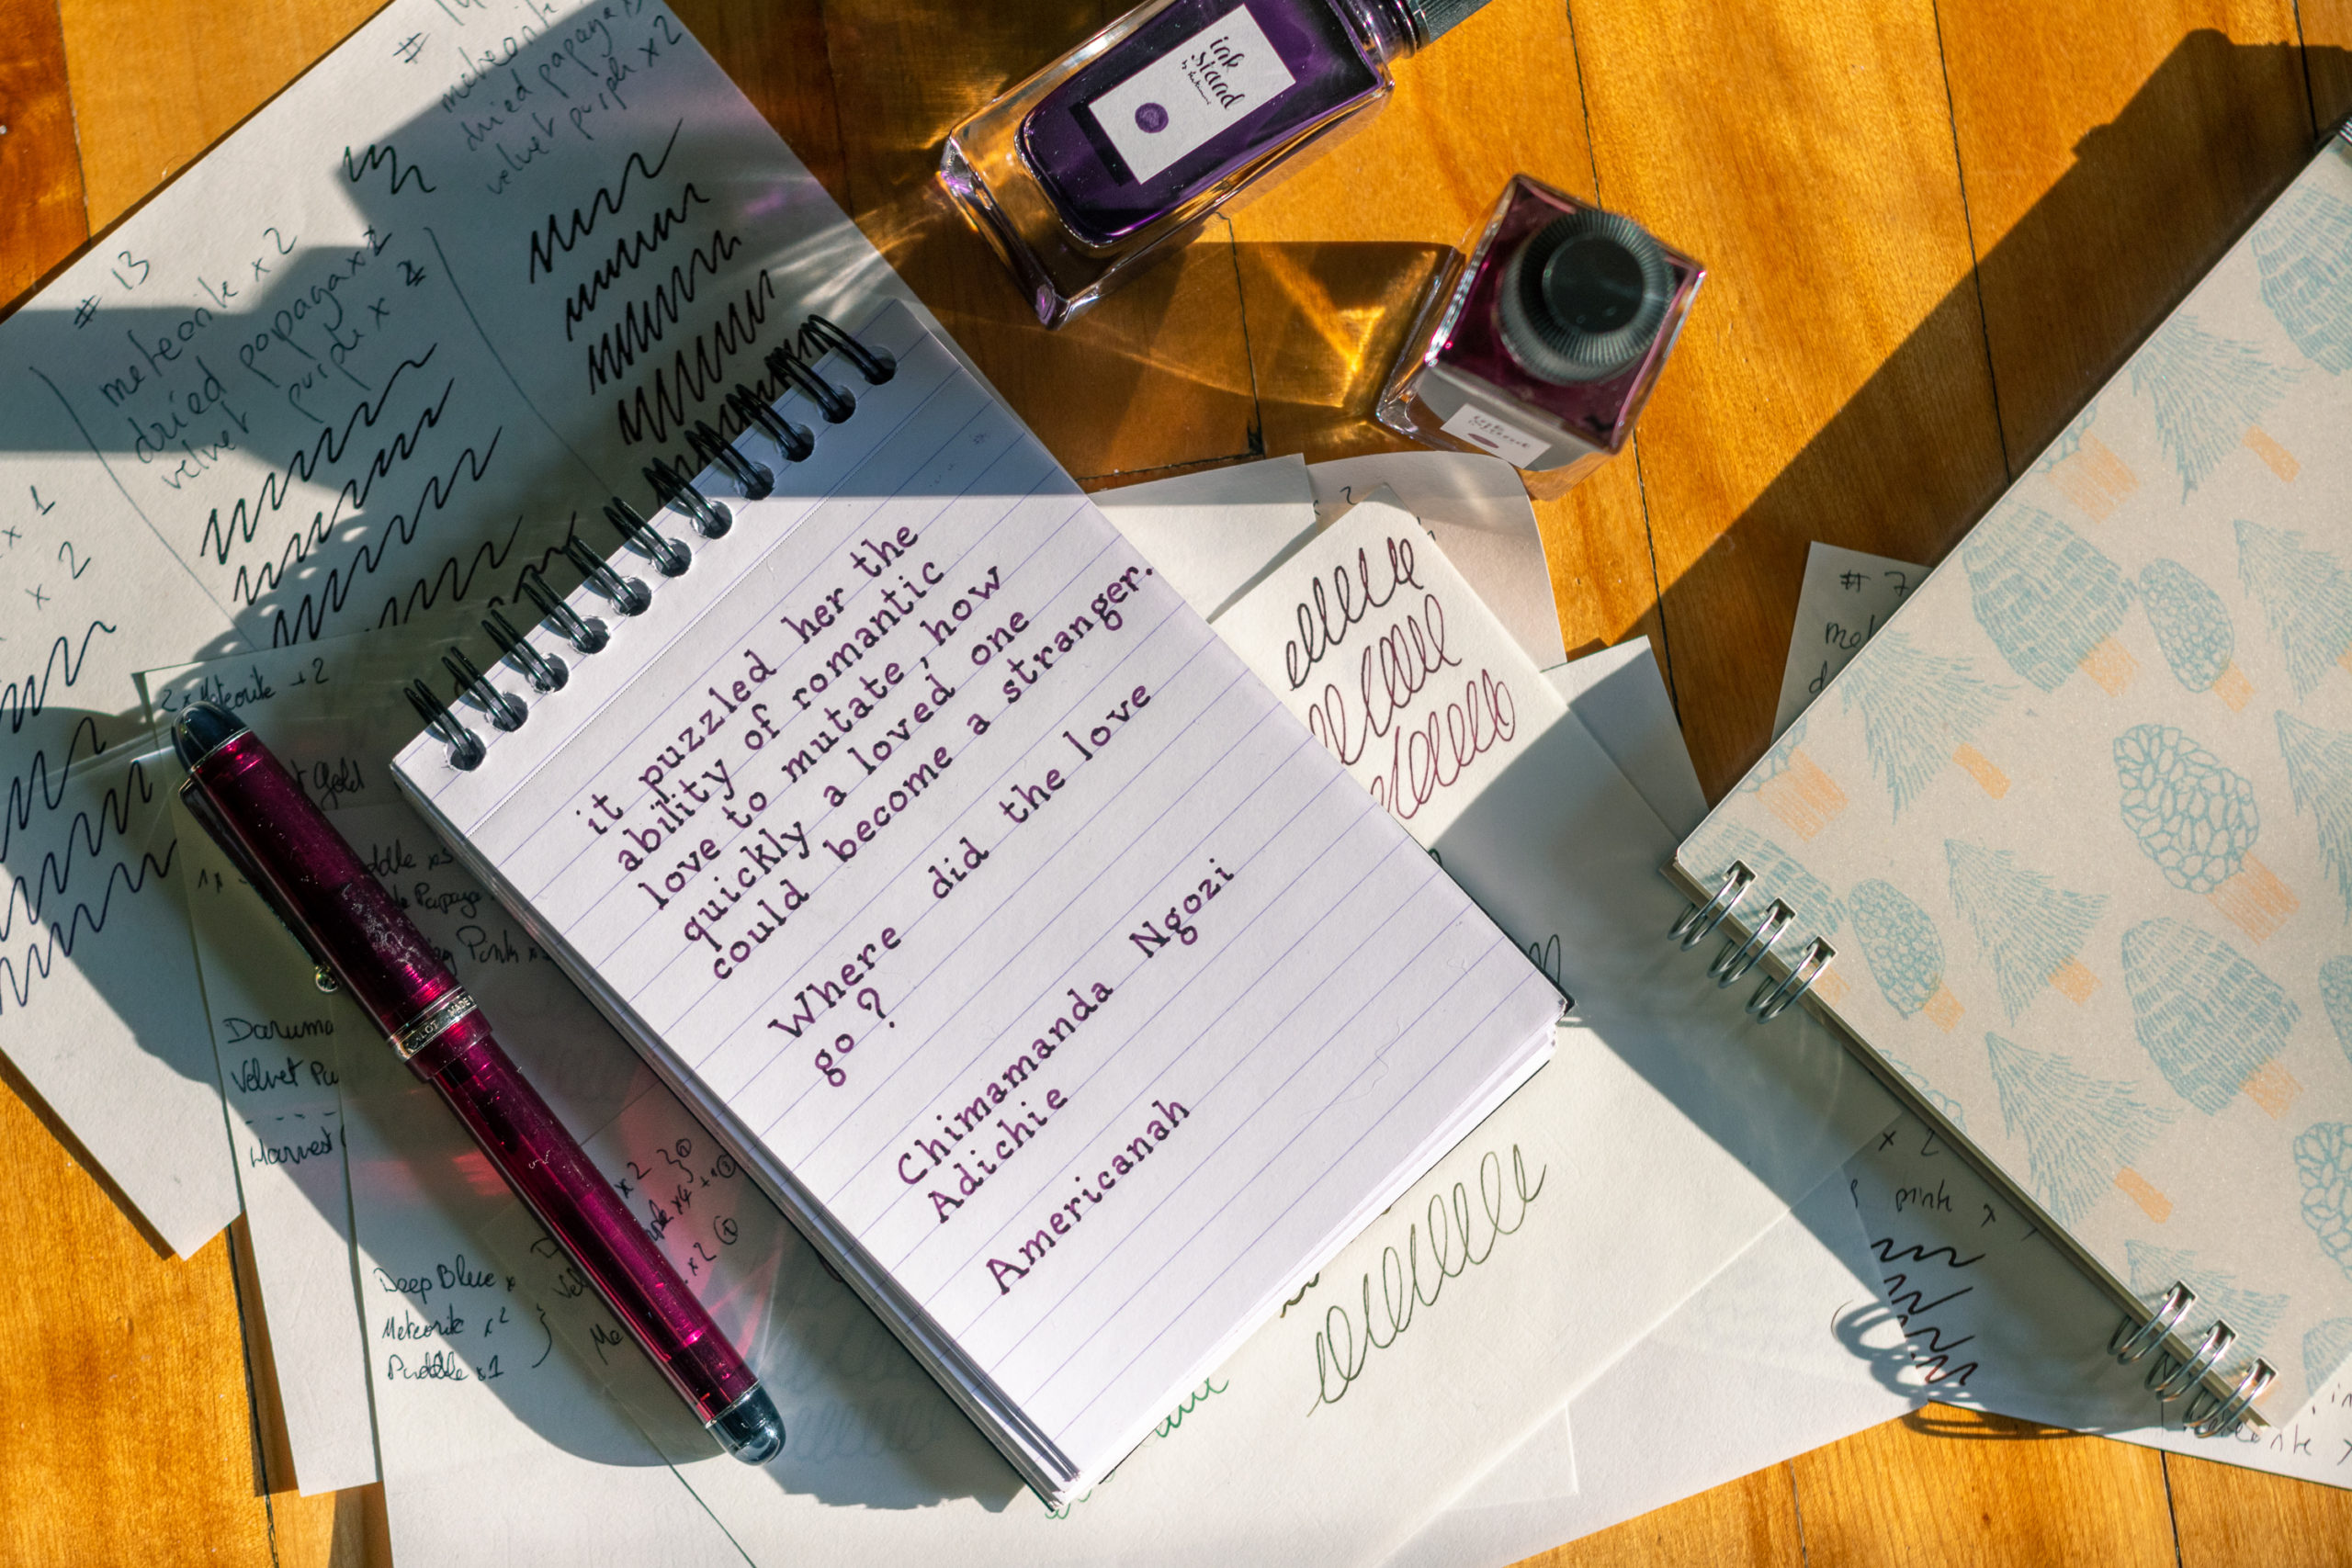 # 14
meteorite
dried papaya x
velvet purple x 2
# 13
meteorite x 2
dried papaya x 2
velvet purple x 2
x 1
x 2
ink
stand
2 x Meteorite +2
Gold
x3
Papaya
Pink
Daruma
Velvet Pu
Harvest
Deep Blue x
Meteorite x2
Puddle x1
x 2
x4
x 2
it puzzled her the
ability of romantic
love to mutate, how
quickly a loved one
could become a stranger.
Where did the love
go?
Chimamanda Ngozi
Adichie
Americanah
2
# 7
met
d
x 2
pink x